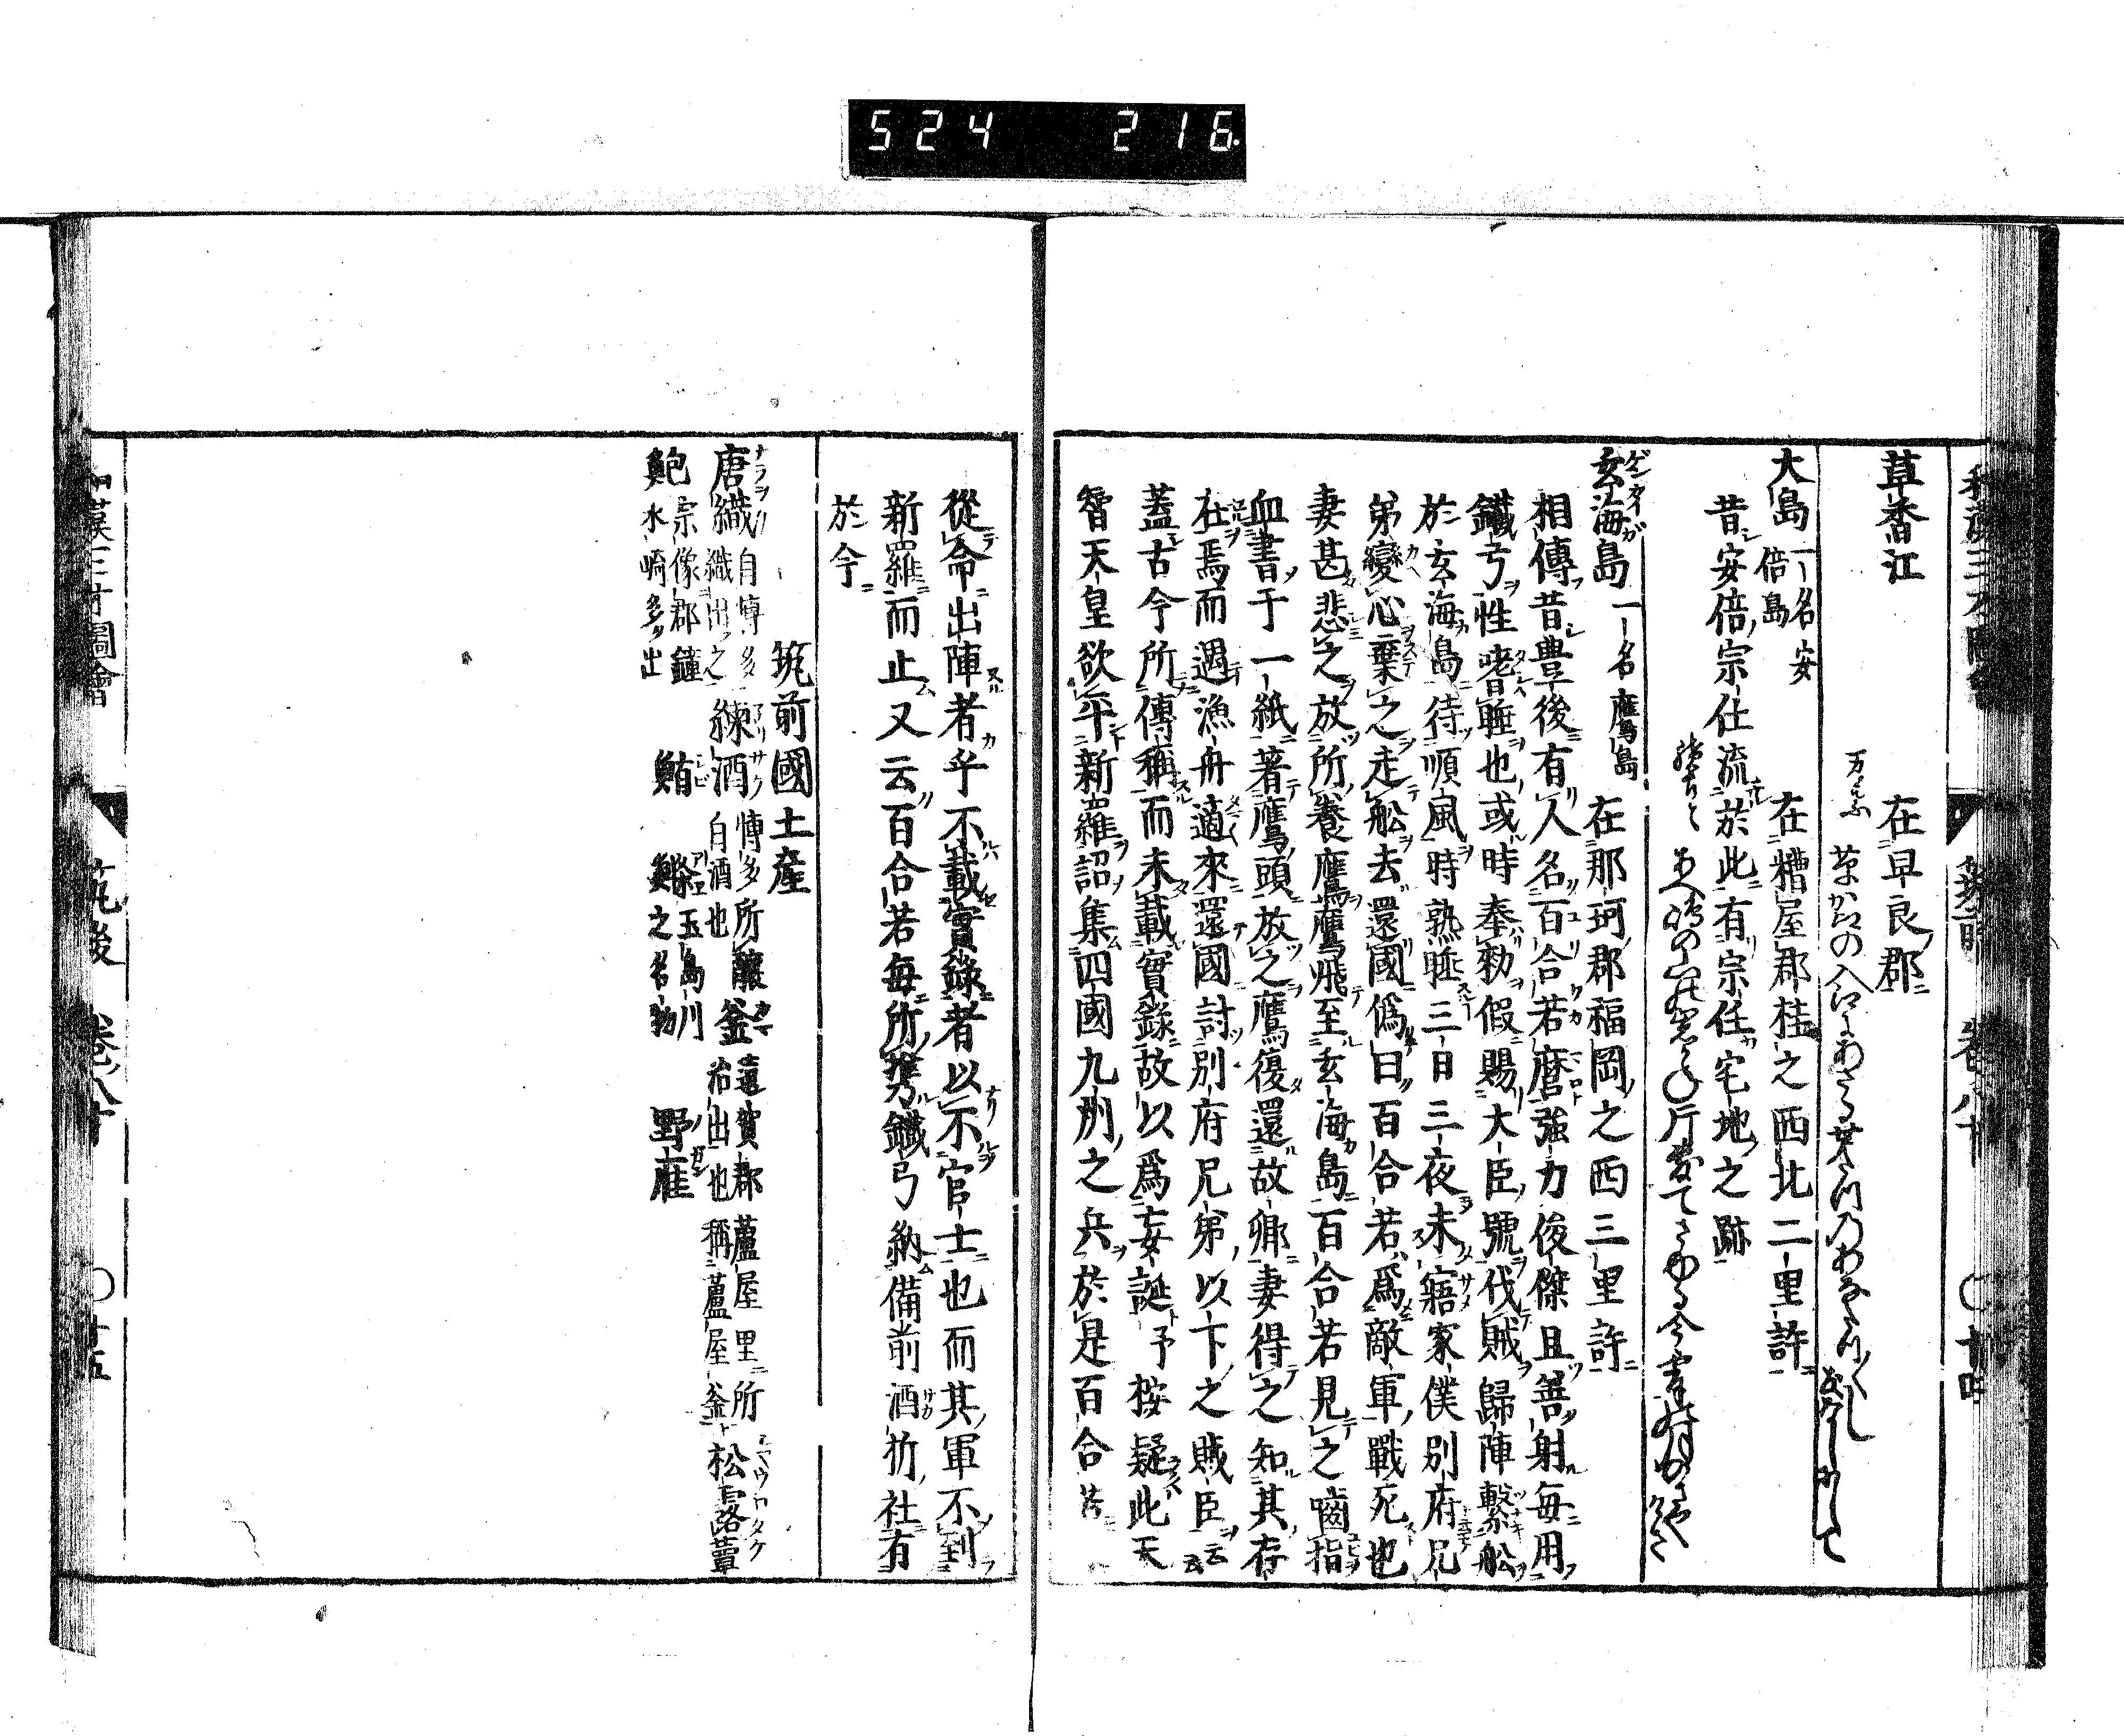 524 216
草香江 在早良郡
万えふ
大島 一名安倍島 在糟屋郡桂之西北二里許
昔安倍宗任流於此有宗任宅地之跡
玄海島 一名鷹島 在那珂郡福岡之西三里許
ゲンカイガ
相傳昔豊後有人名百合若麿強力俊傑且善射毎用
鐵弓性嗜睡也或時奉勅假賜大臣號伐賊歸陣繋舩
於玄海島待順風時熟睡三日三夜未寤家僕別府兄
弟變心棄之走舩去還國僞曰百合若爲敵軍戰死也
妻甚悲之放所養鷹鷹飛至玄海島百合若見之嚙指
血書于一紙著鷹頭放之鷹復還故郷妻得之知其存
在焉而遇漁舟適來還國討別府兄弟以下之賊臣云云
蓋古今所傳稱而未載實錄故以爲妄誕予按疑此天
智天皇欲平新羅詔集四國九刕之兵於是百合若
從命出陣者乎不載實錄者以不官士也而其軍不到
新羅而止又云百合若毎所携鐵弓納備前酒折社有
於今
筑前國土産
唐織 自博多織出之 練酒 博多所釀白酒也 釜 遠賀郡蘆屋里所冶出也稱蘆屋釜 松露蕈
鮑 宗像郡鐘水崎多出 鮪 鰷 玉島川之名物 野雁
筑後 卷八十